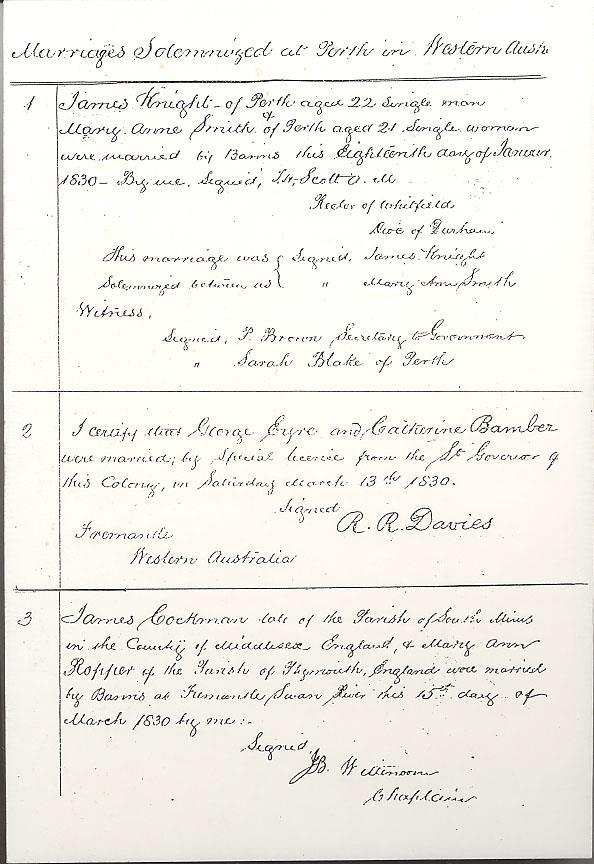 Marriages Solemnized at Perth in Western Austr
1 James Knight - of Perth aged 22 Single man
& Mary Anne Smith of Perth aged 21 Single woman
were married by Banns this Eighteenth day of Januar
1830 - By me. Signed, T.H. Scott A. M
Rector of Whitfield
Dioc of Durham
This marriage was { Signed, James Knight
Solemnized between us { " Mary Ann Smith
Witness,
Signed, P. Brown, Secretary to Government
" Sarah Blake of Perth
2 I certify that George Eyre and Catherine Bamber
were married; by Special licence from the Lt Governor of
this Colony, on Saturday March 13th 1830.
Signed
R. R. Davies
Fremantle
Western Australia
3 James Cockman late of the Parish of South Mims
in the County of Middlesex England, & Mary Ann
Ropper of the Parish of Plymouth, England were married
by Banns at Fremantle Swan River this 15th day of
March 1830 by me:-
Signed
J.B. Wittenoom
Chaplain